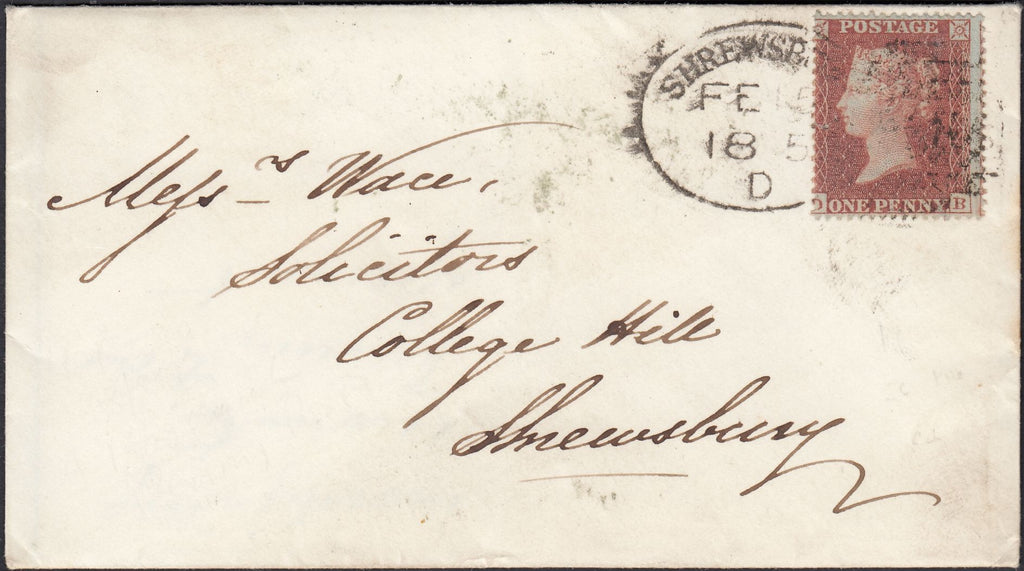 SHREWSB
POSTAGE
FE 15
18 5
D
ONE PENNY B
Messrs Wace,
Solicitors
College Hill
Shrewsbury